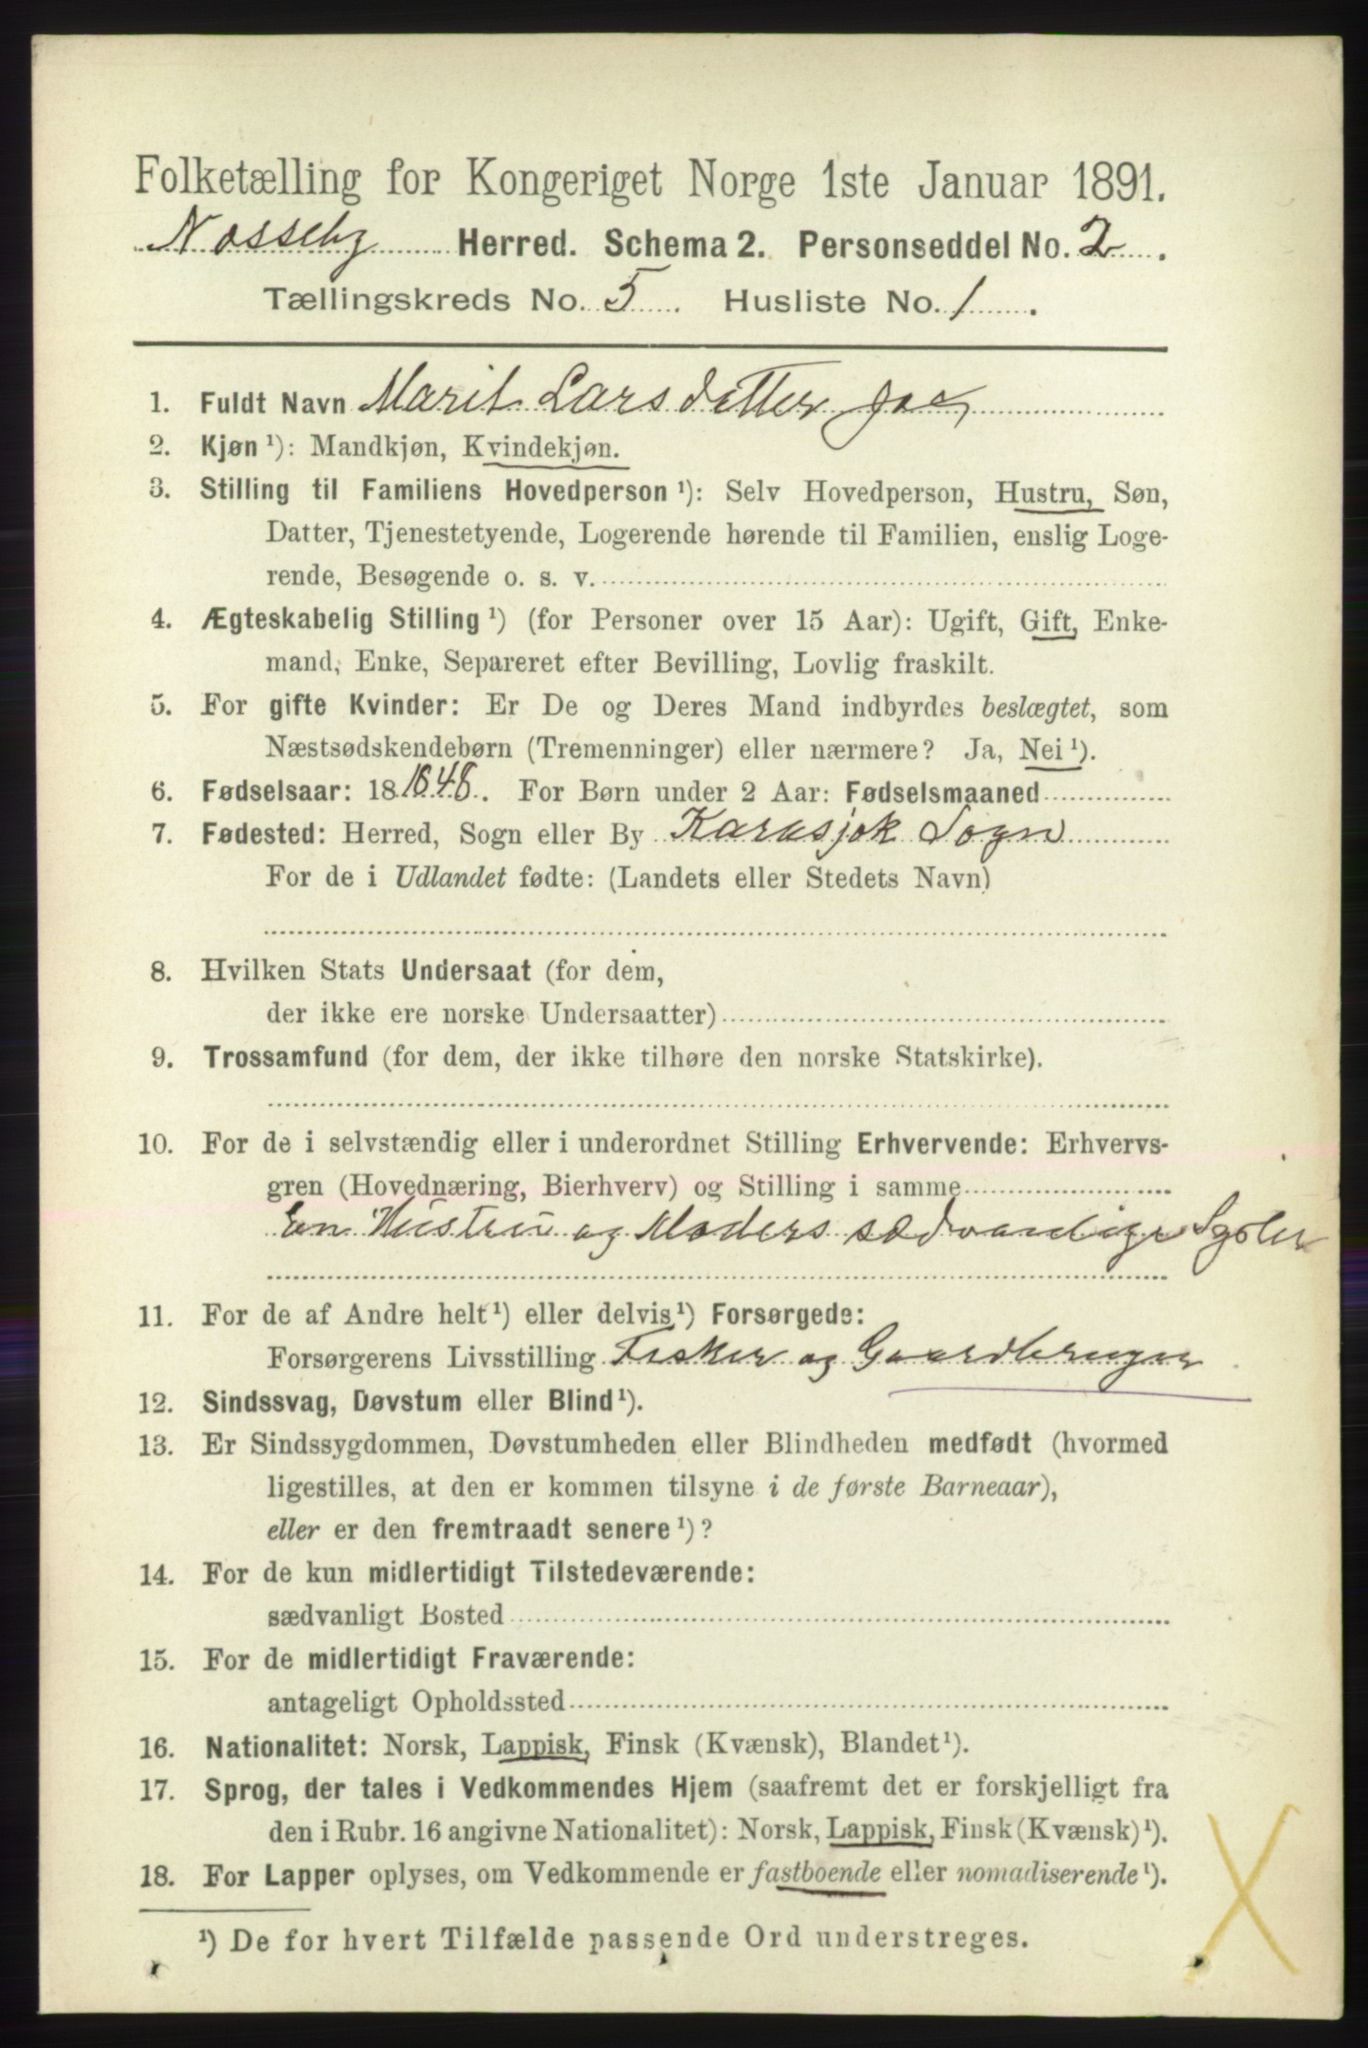 Folketælling for Kongeriget Norge 1ste Januar 1891.
Næsseby Herred. Schema 2. Personseddel No. 2.
Tællingskreds No. 5. Husliste No. 1.
1. Fuldt Navn Marit Larsdatter
2. Kjøn ¹): Mandkjøn, Kvindekjøn.
3. Stilling til Familiens Hovedperson ¹): Selv Hovedperson, Hustru, Søn,
Datter, Tjenestetyende, Logerende hørende til Familien, enslig Loge-
rende, Besøgende o. s. v.
4. Ægteskabelig Stilling ¹) (for Personer over 15 Aar): Ugift, Gift, Enke-
mand, Enke, Separeret efter Bevilling, Lovlig fraskilt.
5. For gifte Kvinder: Er De og Deres Mand indbyrdes beslægtet, som
Næstsødskendebørn (Tremenninger) eller nærmere? Ja, Nei ¹).
6. Fødselsaar: 18 1848. For Børn under 2 Aar: Fødselsmaaned
7. Fødested: Herred, Sogn eller By Karasjok Sogn
For de i Udlandet fødte: (Landets eller Stedets Navn)
8. Hvilken Stats Undersaat (for dem,
der ikke ere norske Undersaatter)
9. Trossamfund (for dem, der ikke tilhøre den norske Statskirke).
10. For de i selvstændig eller i underordnet Stilling Erhvervende: Erhvervs-
gren (Hovednæring, Bierhverv) og Stilling i samme
En Hustru og Moders sædvanlige Sysler
11. For de af Andre helt ¹) eller delvis ¹) Forsørgede:
Forsørgerens Livsstilling Fisker og Gaardbruger
12. Sindssvag, Døvstum eller Blind ¹).
13. Er Sindssygdommen, Døvstumheden eller Blindheden medfødt (hvormed
ligestilles, at den er kommen tilsyne i de første Barneaar),
eller er den fremtraadt senere ¹)?
14. For de kun midlertidigt Tilstedeværende:
sædvanligt Bosted
15. For de midlertidigt Fraværende:
antageligt Opholdssted
16. Nationalitet: Norsk, Lappisk, Finsk (Kvænsk), Blandet ¹).
17. Sprog, der tales i Vedkommendes Hjem (saafremt det er forskjelligt fra
den i Rubr. 16 angivne Nationalitet): Norsk, Lappisk, Finsk (Kvænsk) ¹).
18. For Lapper oplyses, om Vedkommende er fastboende eller nomadiserende ¹).
¹) De for hvert Tilfælde passende Ord understreges.